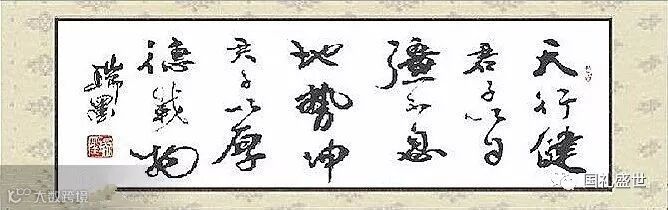 天行健
君子以自
彊不息
地勢坤
君子以厚
德載物
国礼盛世
大数跨境